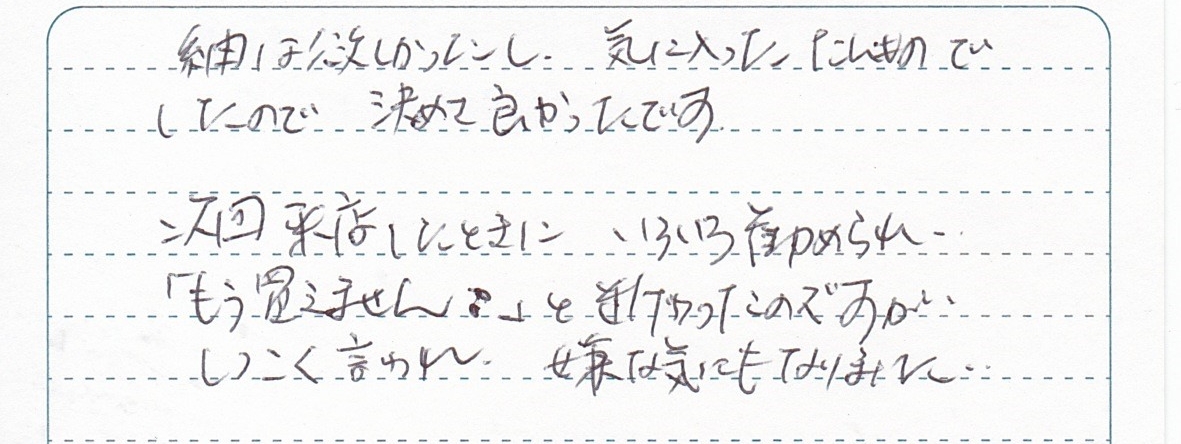 紬は欲しかったし、気に入ったたんもので
したので 決めて良かったです
次回来店したときに いろいろ勧められ…
「もう買えません。」と 逃げ切ったのですが…
しつこく言われ、嫌な気にもなりました…